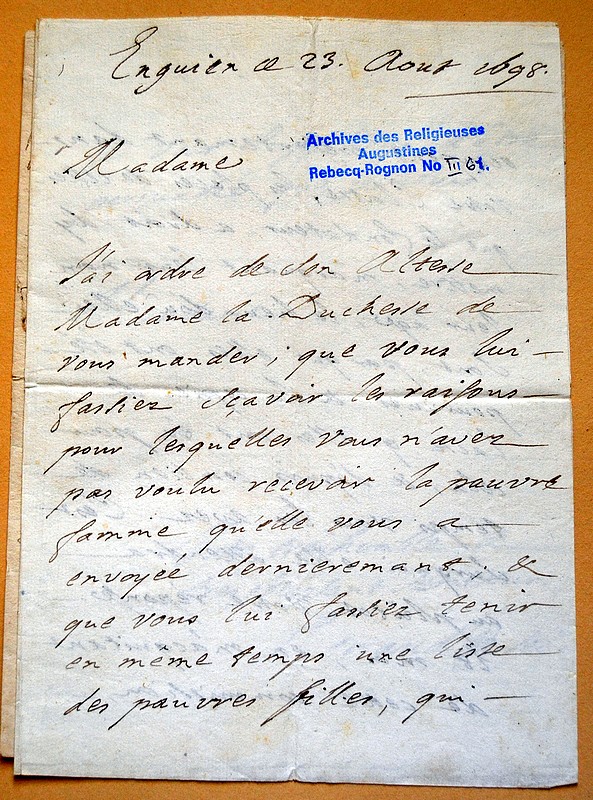 Enguien ce 23. Aout 1698.
Archives des Religieuses
Augustines
Rebecq-Rognon No III 61.
Madame
J'ai ordre de Son Altesse
Madame la Duchesse de
vous mander, que vous lui
fassiez sçavoir les raisons
pour lesquelles vous n'avez
pas voulu recevoir la pauvre
famme qu'elle vous a
envoyée dernieremant. &
que vous lui fassiez tenir
en même temps une liste
des pauvres filles, qui